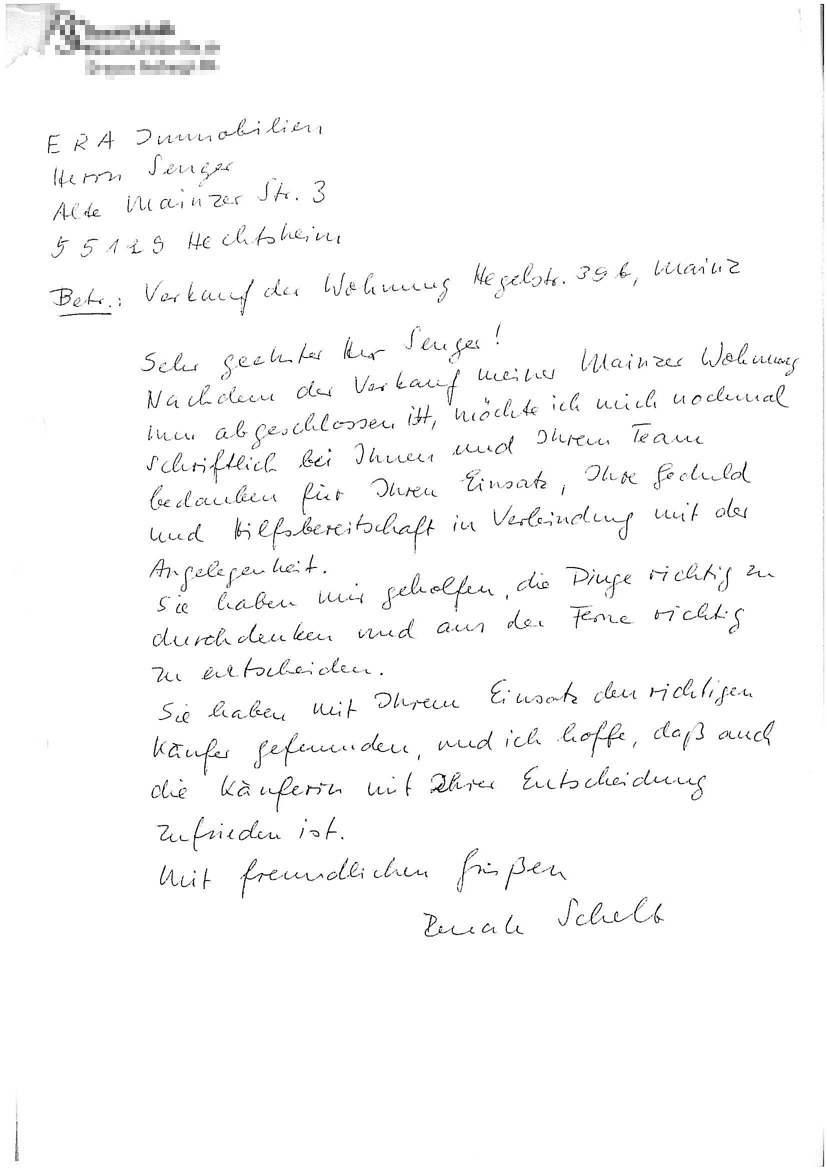 ERA Immobilien
Herrn Senger
Alte Mainzer Str. 3
55129 Hechtsheim
Betr.: Verkauf der Wohnung Hegelstr. 39 b, Mainz
Sehr geehrter Herr Senger!
Nachdem der Verkauf meiner Mainzer Wohnung
nun abgeschlossen ist, möchte ich mich nochmal
schriftlich bei Ihnen und Ihrem Team
bedanken für Ihren Einsatz, Ihre Geduld
und Hilfsbereitschaft in Verbindung mit der
Angelegenheit.
Sie haben mir geholfen, die Dinge richtig zu
durchdenken und aus der Ferne richtig
zu entscheiden.
Sie haben mit Ihrem Einsatz den richtigen
Käufer gefunden, und ich hoffe, daß auch
die Käuferin mit Ihrer Entscheidung
zufrieden ist.
Mit freundlichen Grüßen
Renate Schelb